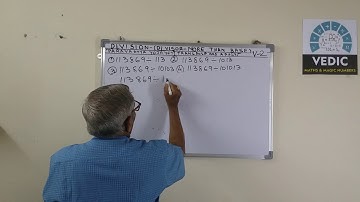 DIVISION-(DIVISOR MORE THAN BASE)
V-2
① 113869 – 113 ② 113869 – 1013
③ 113869 – 10103 ④ 113869 – 101013
113869 – 1
VEDIC
MATHS & MAGIC NUMBERS